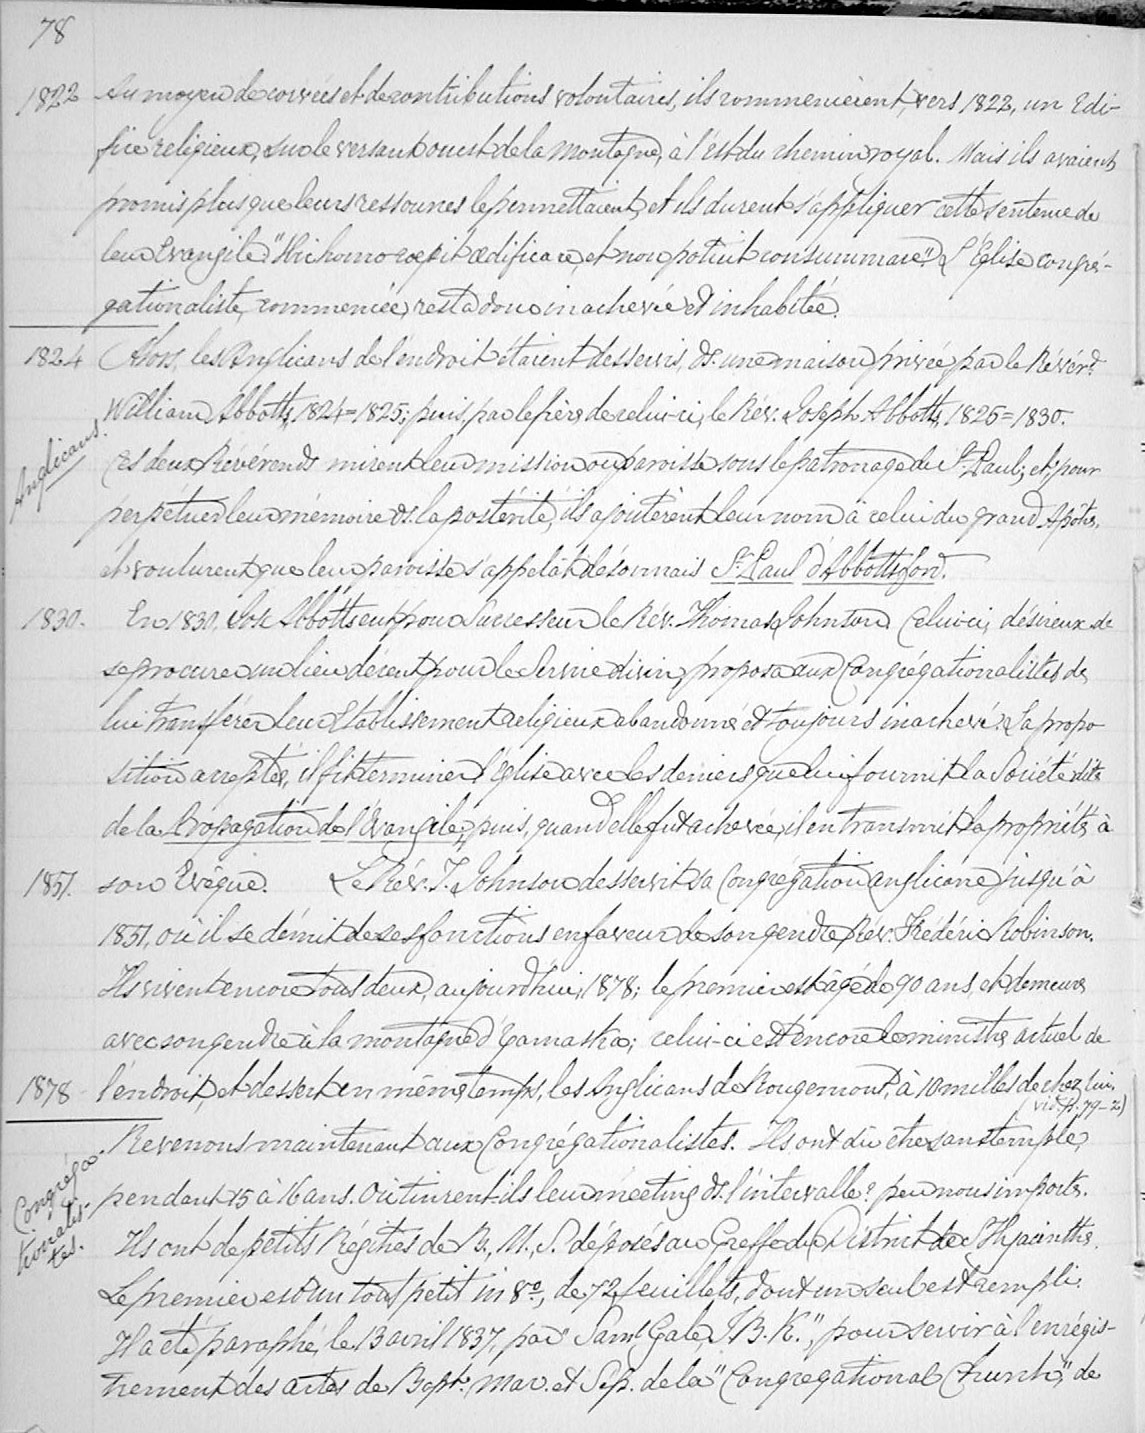 78
1822 Au moyen de corvées et de contributions volontaires, ils commencèrent, vers 1822, un Edi-
fice religieux, sur le versant ouest de la Montagne, à l'Est du chemin royal. Mais ils avaient
promis plus que leurs ressources le permettaient, et ils durent s'appliquer cette sentence de
leur Evangile "Hic homo cœpit ædificare, et non potuit consummare". L'Eglise congré-
gationaliste, commencée, resta donc inachevée et inhabitée.
1824 Alors, les Anglicans de l'endroit étaient desservis, ds. une maison privée, par le Révérd.
William Abbotts, 1824=1825; puis, par le frère de celui-ci, le Rév. Joseph Abbotts, 1825=1830.
Anglicans.
Ces deux Révérends mirent leur mission ou paroisse sous le patronage de St. Paul; et, pour
perpétuer leur mémoire ds. la postérité, ils ajoutèrent leur nom à celui du grand Apôtre,
et voulurent que leur paroisse s'appelât désormais St. Paul d'Abbottsford.
1830. En 1830, Jos. Abbotts eut pour Successeur le Rév. Thomas Johnson. Celui-ci, désireux de
se procurer un lieu décent pour le Service divin, proposa aux Congrégationalistes de
lui transférer leur Etablissement religieux abandonné et toujours inachevé. La propo
sition acceptée, il fit terminer l'Eglise avec les deniers que lui fournit la Société dite
de la Propagation de l'Evangile; puis, quand elle fut achevée, il en transmit la propriété à
1851. son Evêque. Le Rév. T. Johnson desservit sa Congrégation anglicane jusqu'à
1851, où il se démit de ses fonctions en faveur de son gendre Rév. Frédéric Robinson.
Ils vivent encore tous deux, aujourd'hui, 1878; le premier est âgé de 90 ans, et demeure
avec son gendre à la montagne d'Yamaska; celui-ci est encore le ministre actuel de
1878 l'endroit, et dessert en même temps, les Anglicans de Rougemont, à 10 milles de chez lui.
(vid. p. 79-2)
Revenons maintenant aux Congrégationalistes. Ils ont dû être sans temple,
Congréga-
tionalis-
tes.
pendant 15 à 16 ans. Où tinrent-ils leur meeting ds. l'intervalle? peu nous importe.
Ils ont de petits Régitres de B. M. S. déposés au Greffe du District de St Hyacinthe.
Le premier est un tout petit in 8o, de 72 feuillets, dont un seul est rempli.
Il a été paraphé, le 13 avril 1837, par "Saml Gale, J. B. K.", pour servir à l'enrégis-
trement des actes de Bapt. Mar. et Sép. de la "Congregational Church", de